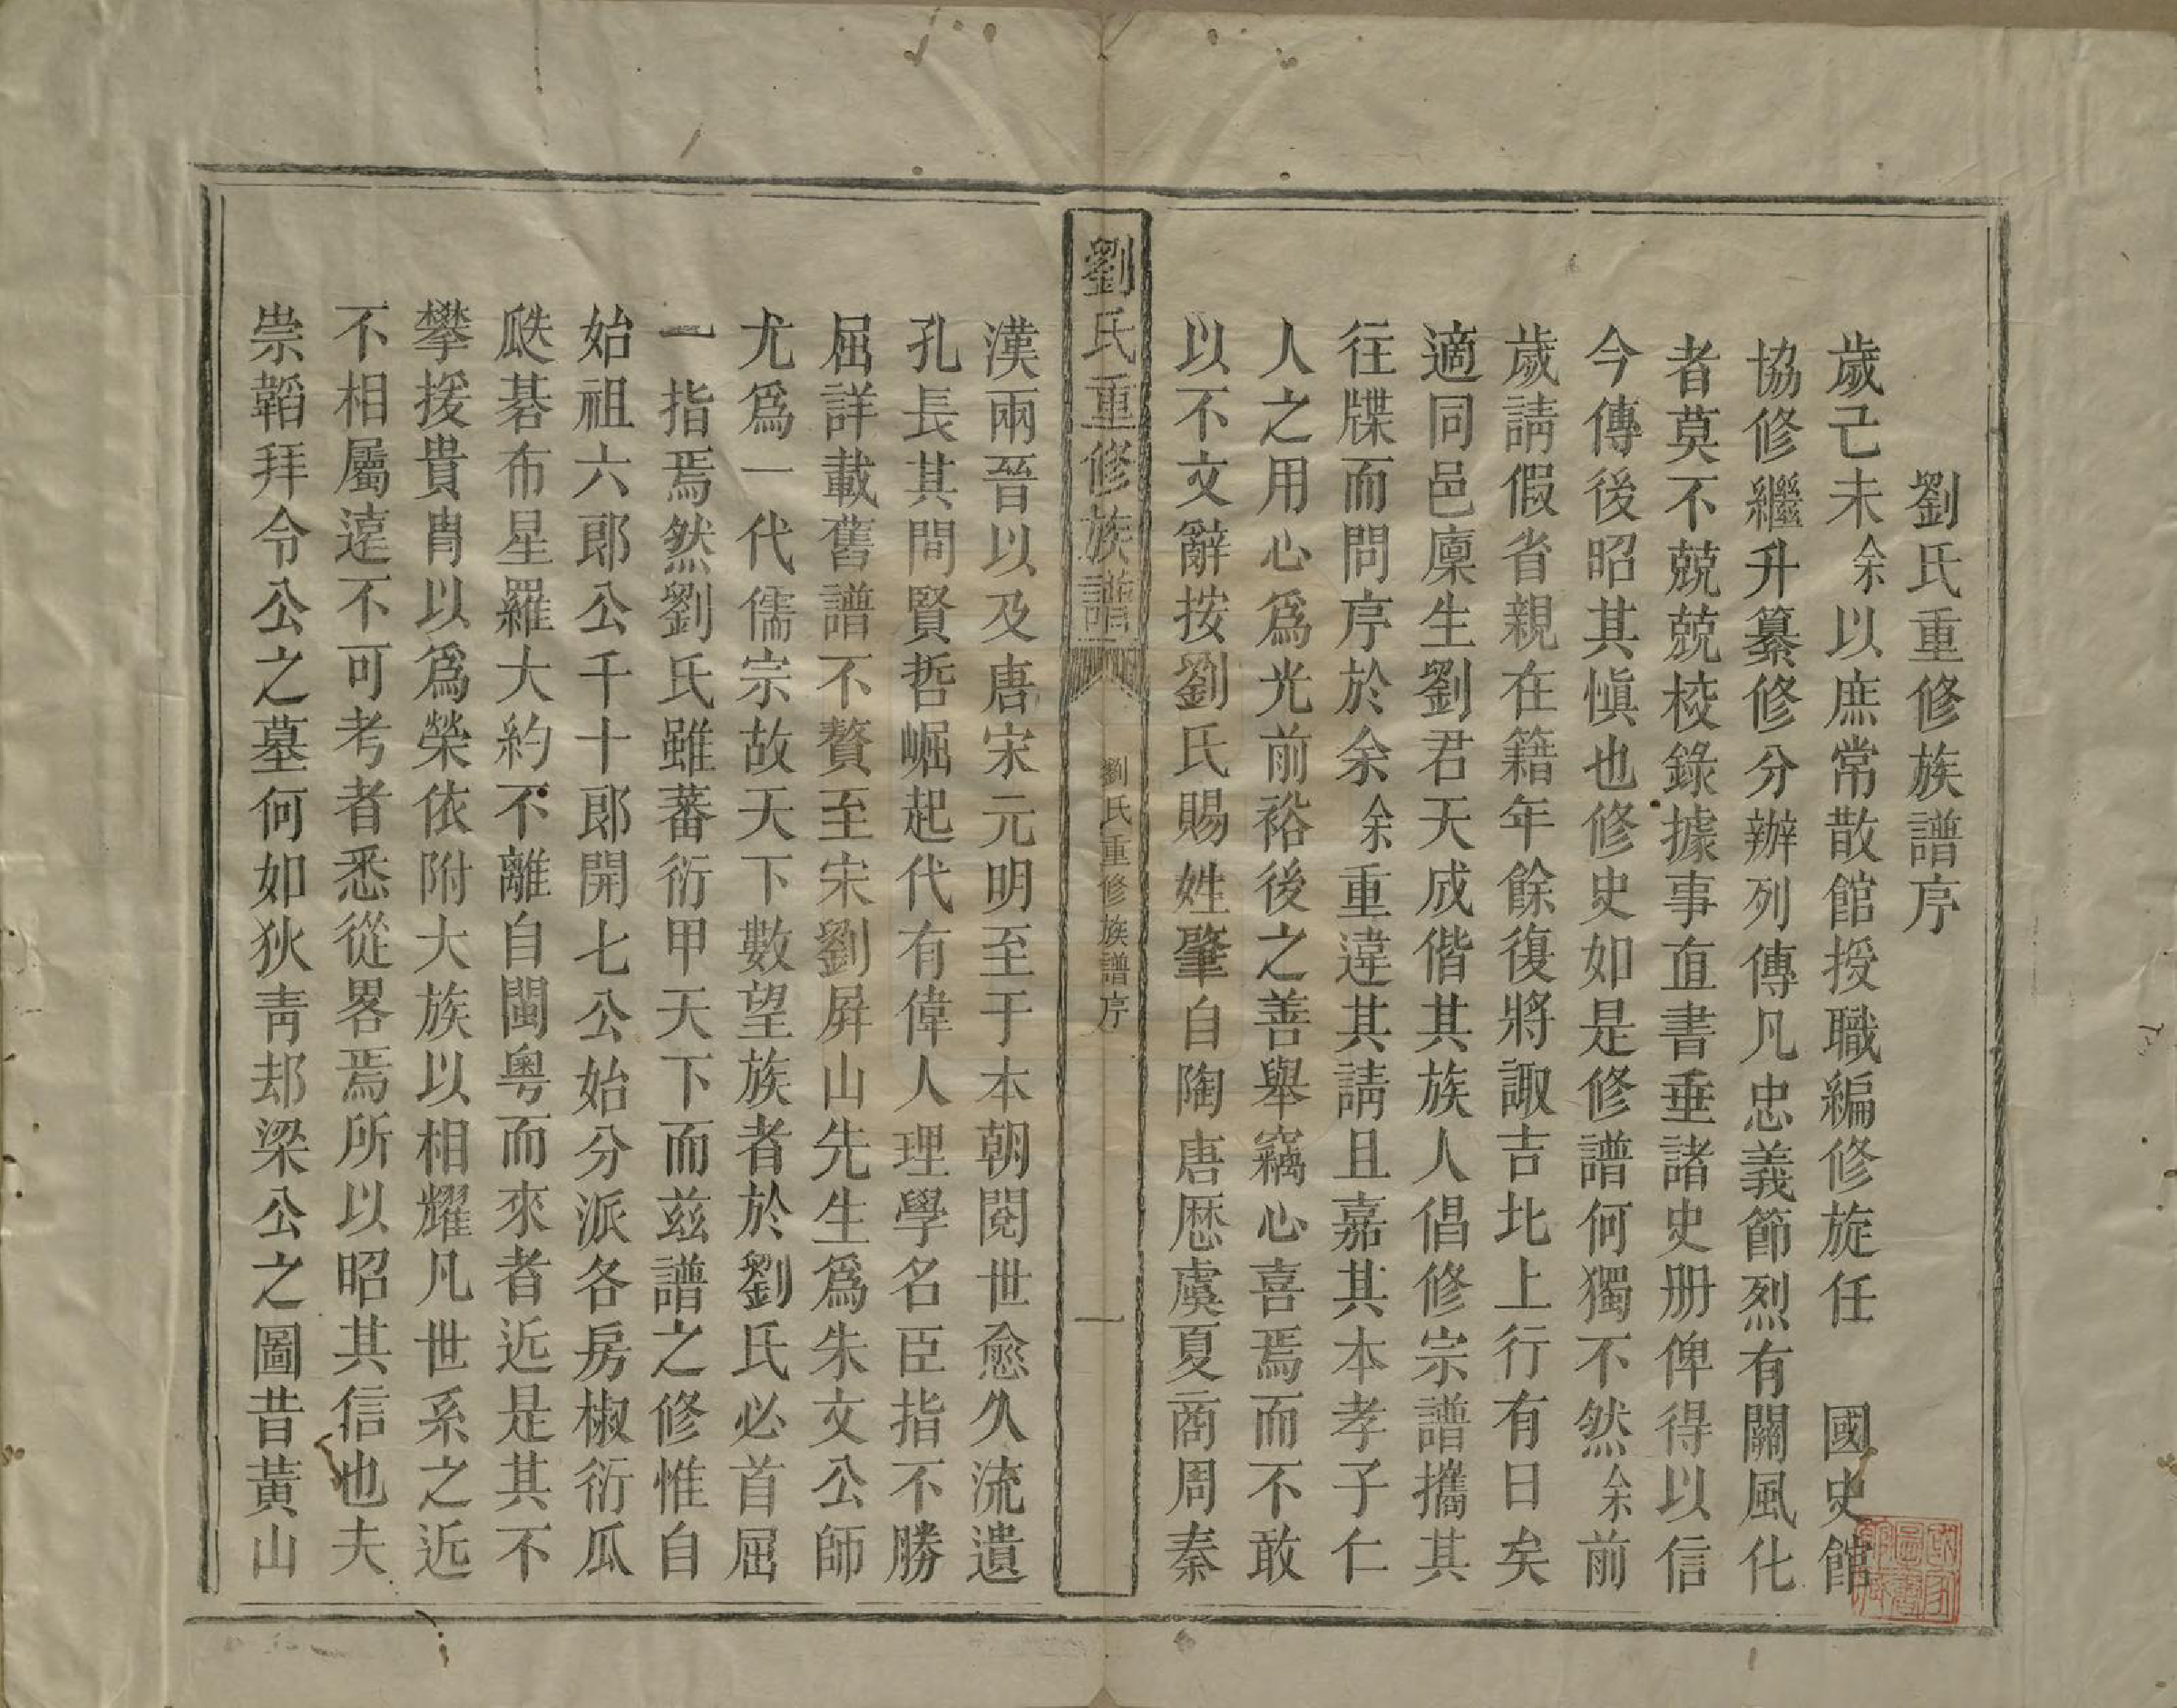 劉氏重修族譜序
歲己未余以庶常散館授職編修旋任 國史館
協修繼升纂修分辦列傳凡忠義節烈有關風化
者莫不兢兢校錄據事直書垂諸史册俾得以信
今傳後昭其愼也修史如是修譜何獨不然余前
歲請假省親在籍年餘復將諏吉北上行有日矣
適同邑廩生劉君天成偕其族人倡修宗譜攜其
往牒而問序於余余重違其請且嘉其本孝子仁
人之用心爲光前裕後之善舉竊心喜焉而不敢
以不文辭按劉氏賜姓肇自陶唐歴虞夏商周秦
劉氏重修族譜
劉氏重修族譜序
一
漢兩晉以及唐宋元明至于本朝閱世愈久流遺
孔長其間賢哲崛起代有偉人理學名臣指不勝
屈詳載舊譜不贅至宋劉屛山先生爲朱文公師
尤爲一代儒宗故天下數望族者於劉氏必首屈
一指焉然劉氏雖蕃衍甲天下而兹譜之修惟自
始祖六郎公千十郎開七公始分派各房椒衍瓜
瓞碁布星羅大約不離自閩粵而來者近是其不
攀援貴胄以爲榮依附大族以相耀凡世系之近
不相屬遠不可考者悉從畧焉所以昭其信也夫
崇韜拜令公之墓何如狄靑却梁公之圖昔黃山